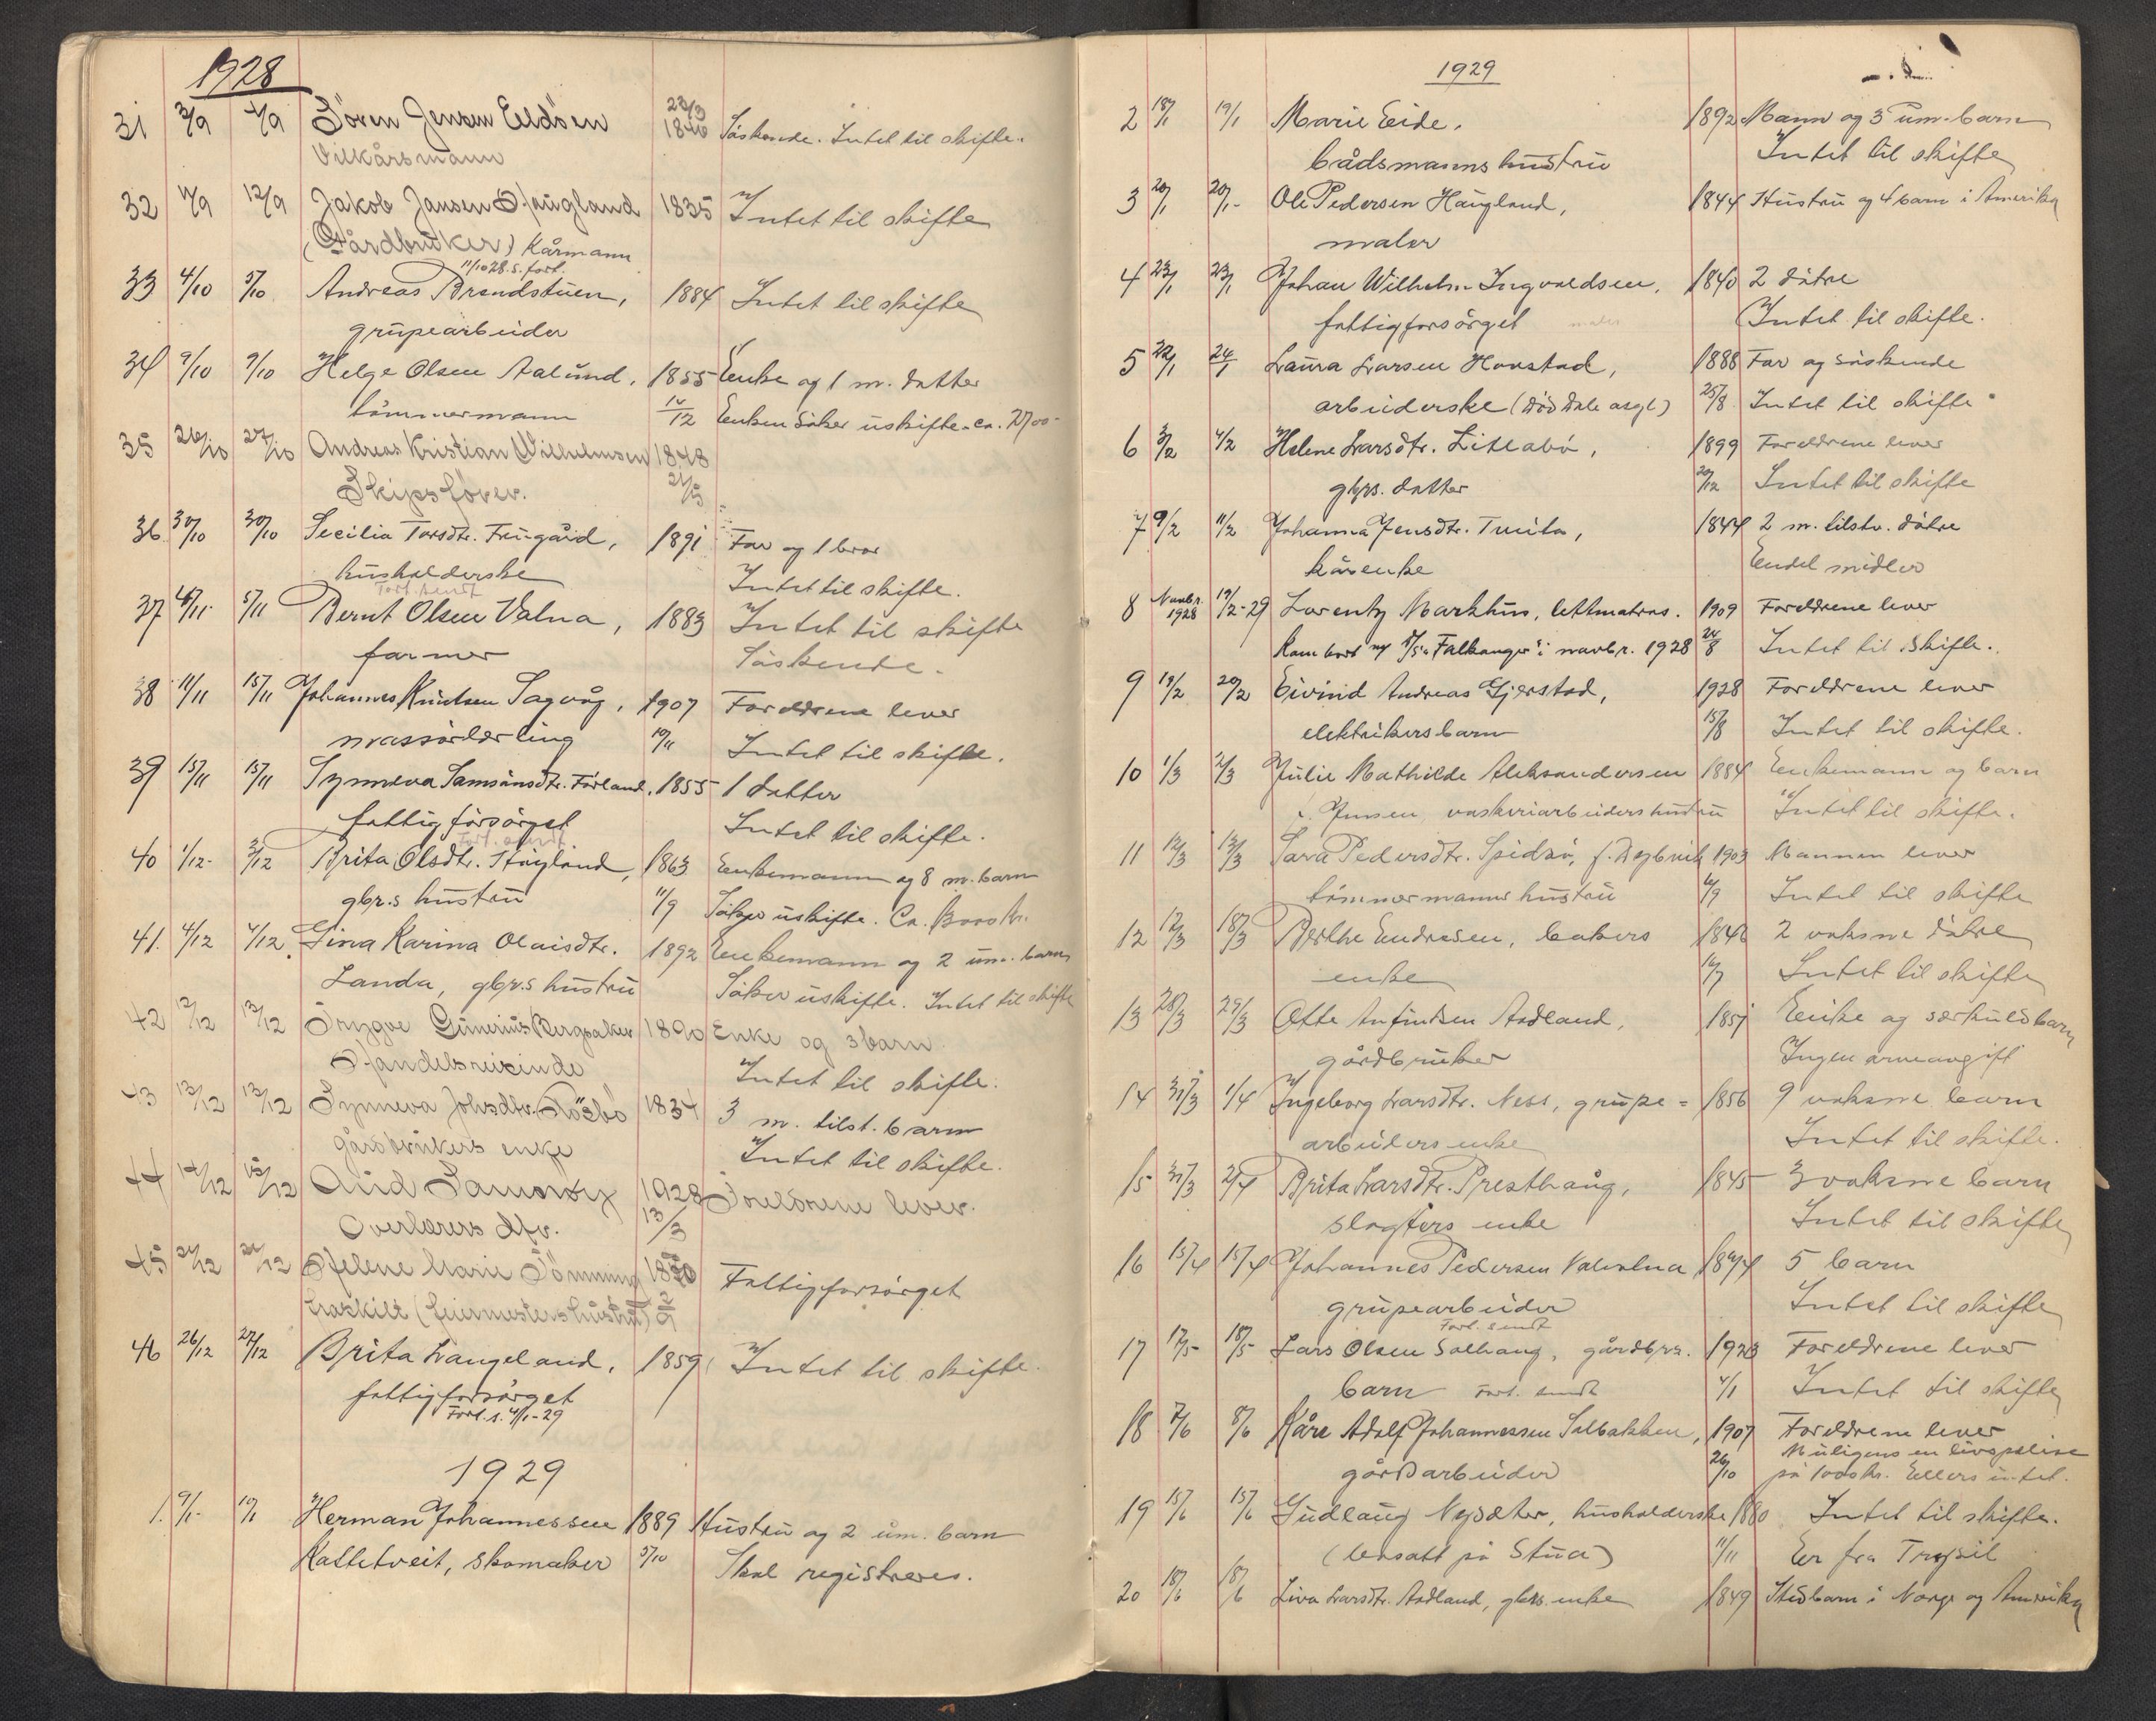 1928
31 3/9 4/9 Sören Jensen Eldöen 23/3 1846 Söskende. Intet til skifte.
Vilkårsmann
32 11/9 12/9 Jakob Jansen Haugland 1835 Intet til skifte
(Gårdbruker) Kårmann
11/10 28. s. forl.
33 4/10 5/10 Andreas Brandstuen, 1884 Intet til skifte
grupearbeider
34 9/10 9/10 Helge Olsen Aalund, 1855 Enke og 1 m. datter
tömmermann 14/12 Enken söker uskifte. ca.
35 26/10 27/10 Andreas Kristian Wilhelmsen 1848
Skipsförer. 21/5
36 30/10 30/10 Secilia Torsdtr. Frugård, 1891 Far og 1 bror
husholderske Intet til skifte.
Forl. sendt
37 4/11 5/11 Bernt Olsen Valna, 1883 Intet til skifte
farmer Söskende.
38 11/11 15/11 Johannes Knutsen Sagvåg, 1907 Foreldrene lever
massörlærling 19/11 Intet til skifte.
39 15/11 15/11 Synneva Samsonsdtr. Förland, 1855 1 datter
fattigforsörget Intet til skifte.
Forl. sendt
40 1/12 3/12 Brita Olsdtr. Höyland, 1863 Enkemann og 8 m. barn
gbr.s hustru 11/9 Söker uskifte. Ca. 8000 kr.
41. 4/12 4/12. Gina Karina Olaisdtr. 1892 Enkemann og 2 um. barn
Landa, gbr.s hustru Söker uskifte. Intet til skifte
42 12/12 13/12 Trygve Gunerius Bergsaker 1890 Enke og 3 barn.
Handelsreisende Intet til skifte.
43 13/12 13/12 Synneva Johsdtr. Rösbö 1834 3 m. tilst. barn
gårdbrukers enke Intet til skifte.
44 14/12 15/12 Aud Samsöy 1928 Foreldrene lever.
Overlærers dtr. 13/3
45 21/12 21/12 Helene Marie Tömming Fattigforsörget
fraskilt (feiermesters hustru)
46 26/12 27/12 Brita Langeland, 1859 Intet til skifte.
fattigforsörget
Forl. s. 4/1-29
1929
1. 9/1- 10/1 Herman Johannessen 1889 Hustru og 2 um. barn
Kattetveit, skomaker 5/10 Skal registreres.
1929
2 18/1 19/1 Marie Eide, 1892 Mann og 3 um. barn
bådsmanns hustru Intet til skifte
3 20/1 20/1- Ole Pedersen Haugland, 1844 Hustru og 4 barn i Amerika
maler
4 23/1 23/1 Johan Wilhelm Ingvaldsen, 1840 2 dötre
fattigforsörget Intet til skifte.
5 22/1 24/1 Laura Larsen Hovstad, 1888 Far og söskende
arbeiderske (Död Dale asyl) 25/8 Intet til skifte
6 3/2 4/2 Helene Larsdtr. Litlabö, 1899 Foreldrene lever
gbrs. datter 20/12 Intet til skifte
7 9/2 11/2 Johanna Jensdtr. Tveita, 1844 2 m. tilstv. dötre
kårenke Endel midler
8 Novbr. 1928 19/2-29 Lorentz Markhus, lettmatros. 1909 Foreldrene lever
Kom bort m/ D/S "Falkanger" i novbr. 1928 24/8 Intet til skifte.
9 19/2 20/2 Eivind Andreas Gjerstad, 1928 Foreldrene lever
elektrikers barn 15/8 Intet til skifte.
10 1/3 2/3 Julie Mathilde Aleksandersen 1884 Enkemann og barn
f. Jensen, vaskeriarbeiders hustru Intet til skifte.
11 12/3 13/3 Sara Pedersdtr. Spidsö, f. Dybvik 1903 Mannen lever
tömmermanns hustru 6/9 Intet til skifte
12 12/3 18/3 Berthe Endresen, bakers 1846 2 voksne dötre
enke 16/7 Intet til skifte
13 28/3 29/3 Otte Anfindsen Aadland, 1857 Enke og særkuldbarn
gårdbruker Ingen arveavgift
14 31/3 1/4 Ingeborg Larsdtr. Ness, grupe= 1856 9 voksne barn
arbeiders enke Intet til skifte.
15 31/3 2/4 Brita Larsdtr. Presthaug, 1845 3 voksne barn
slagters enke Intet til skifte
16 15/4 15/4 Johannes Pedersen Valvatna 5 barn
grupearbeider Intet til skifte
Forl. sendt
17 17/5 18/5 Lars Olsen Solhaug, gårdbrs. 1923 Foreldrene lever
barn Forl. sendt 4/1 Intet til skifte
18 7/6 8/6 Kåre Adolf Johannessen Solbakken, 1907 Foreldrene lever
Muligens en livspolise
gårdsarbeider 26/10 på 1000 kr. Ellers intet.
19 15/6 15/6 Gudlaug Nysæter, husholderske 1880 Intet til skifte.
(bosatt på Stua) 11/11 Er fra Trysil
20 18/6 18/6 Liva Larsdtr. Aadland, gbrs. enke 1849 Stedbarn i Norge og Amerika